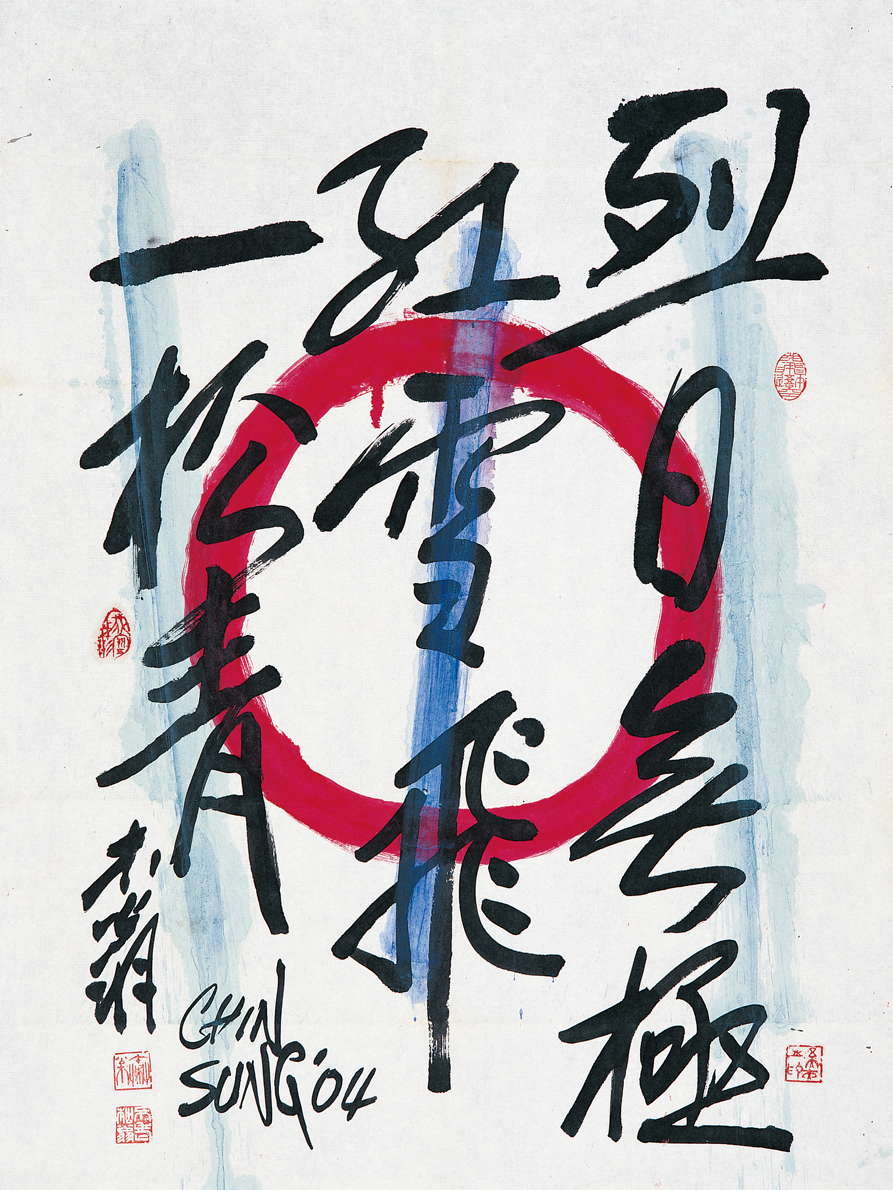 烈日無極
紅雪飛
一松青
CHIN
SUNG '04